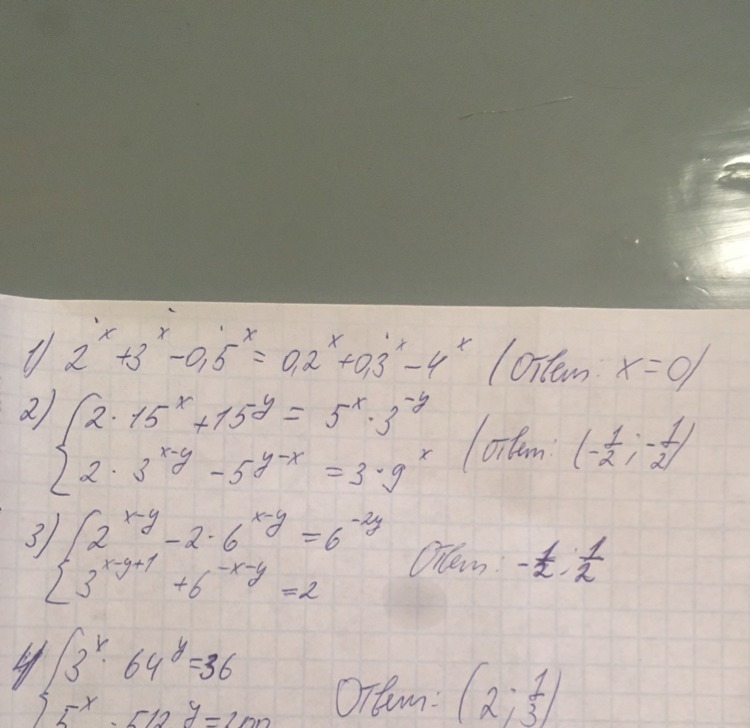 1) 2^x + 3^x - 0,5^x = 0,2^x + 0,3^x - 4^x (Ответ: x = 0)
2) { 2 · 15^x + 15^y = 5^x · 3^-y
2 · 3^x-y - 5^y-x = 3 · 9^x (Ответ: (-1/2; -1/2)
3) { 2^x-y - 2 · 6^x-y = 6^-2y
3^x-y+1 + 6^-x-y = 2 Ответ: -1/2; 1/2
4) { 3^x · 64^y = 36
5^x · 512^y = 200 Ответ: (2; 1/3)